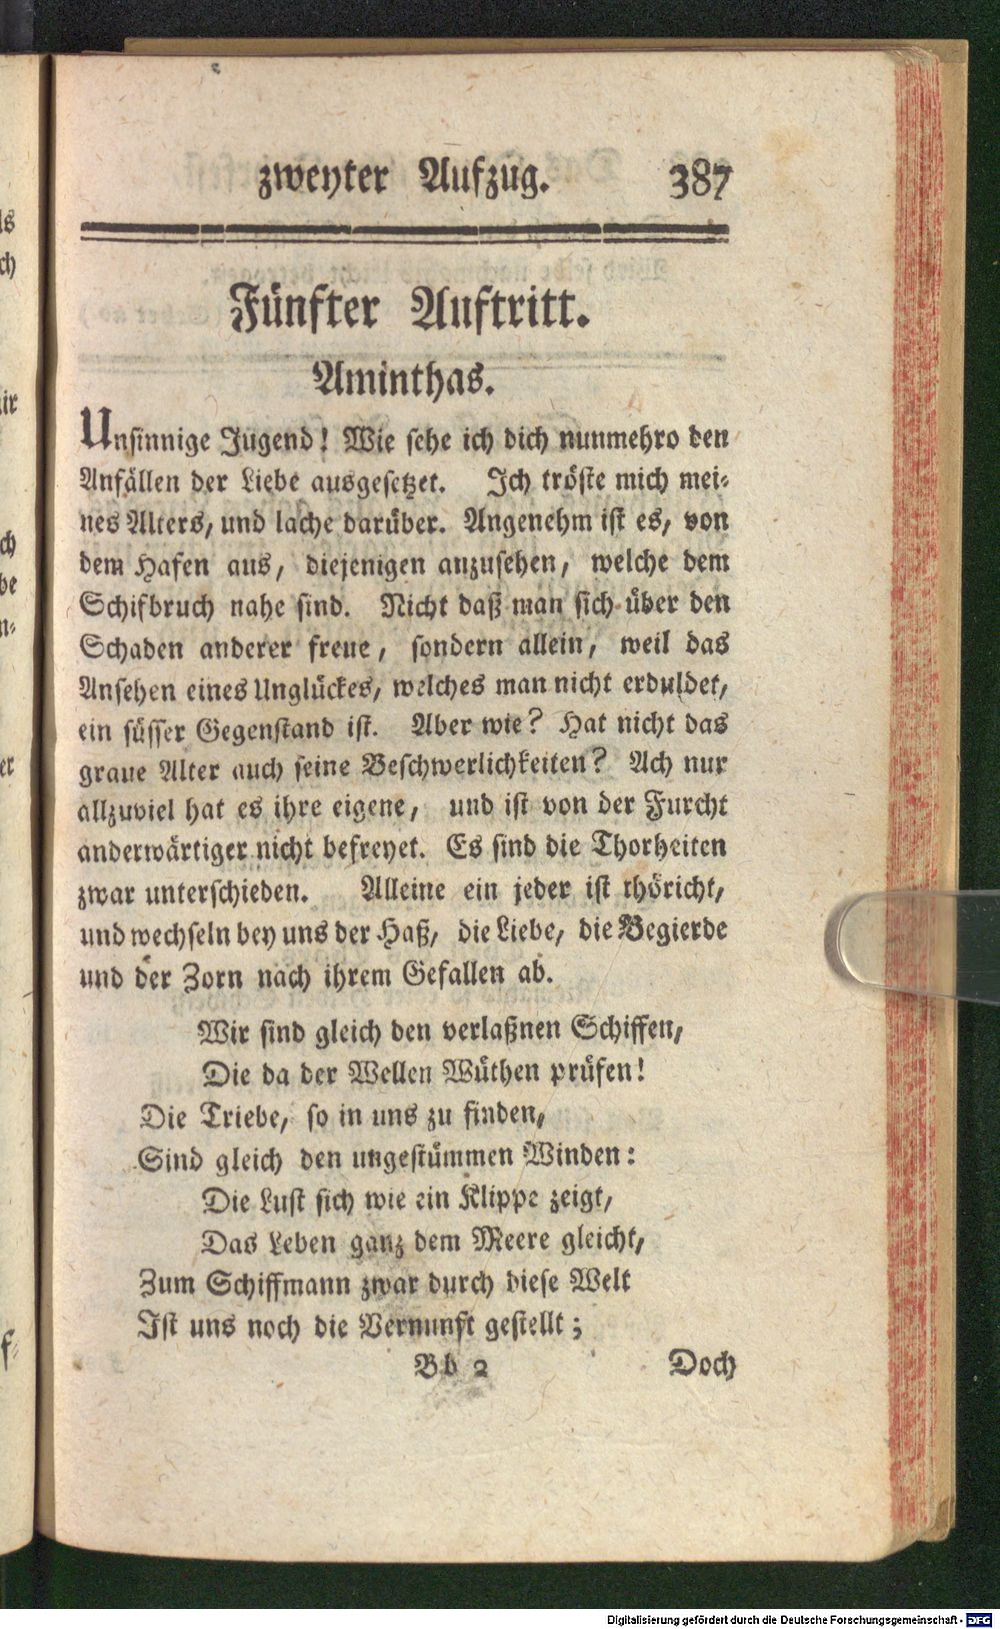 zweyter Aufzug. 387
Fünfter Auftritt.
Aminthas.
Unsinnige Jugend! Wie sehe ich dich nunmehro den
Anfällen der Liebe ausgesetzet. Ich tröste mich mei-
nes Alters, und lache darüber. Angenehm ist es, von
dem Hafen aus, diejenigen anzusehen, welche dem
Schifbruch nahe sind. Nicht daß man sich über den
Schaden anderer freue, sondern allein, weil das
Ansehen eines Unglückes, welches man nicht erduldet,
ein süsser Gegenstand ist. Aber wie? Hat nicht das
graue Alter auch seine Beschwerlichkeiten? Ach nur
allzuviel hat es ihre eigene, und ist von der Furcht
anderwärtiger nicht befreyet. Es sind die Thorheiten
zwar unterschieden. Alleine ein jeder ist thöricht,
und wechseln bey uns der Haß, die Liebe, die Begierde
und der Zorn nach ihrem Gefallen ab.
Wir sind gleich den verlaßnen Schiffen,
Die da der Wellen Wüthen prüfen!
Die Triebe, so in uns zu finden,
Sind gleich den ungestümmen Winden:
Die Lust sich wie ein Klippe zeigt,
Das Leben ganz dem Meere gleicht,
Zum Schiffmann zwar durch diese Welt
Ist uns noch die Vernunft gestellt;
Bb 2 Doch
Digitalisierung gefördert durch die Deutsche Forschungsgemeinschaft - DFG